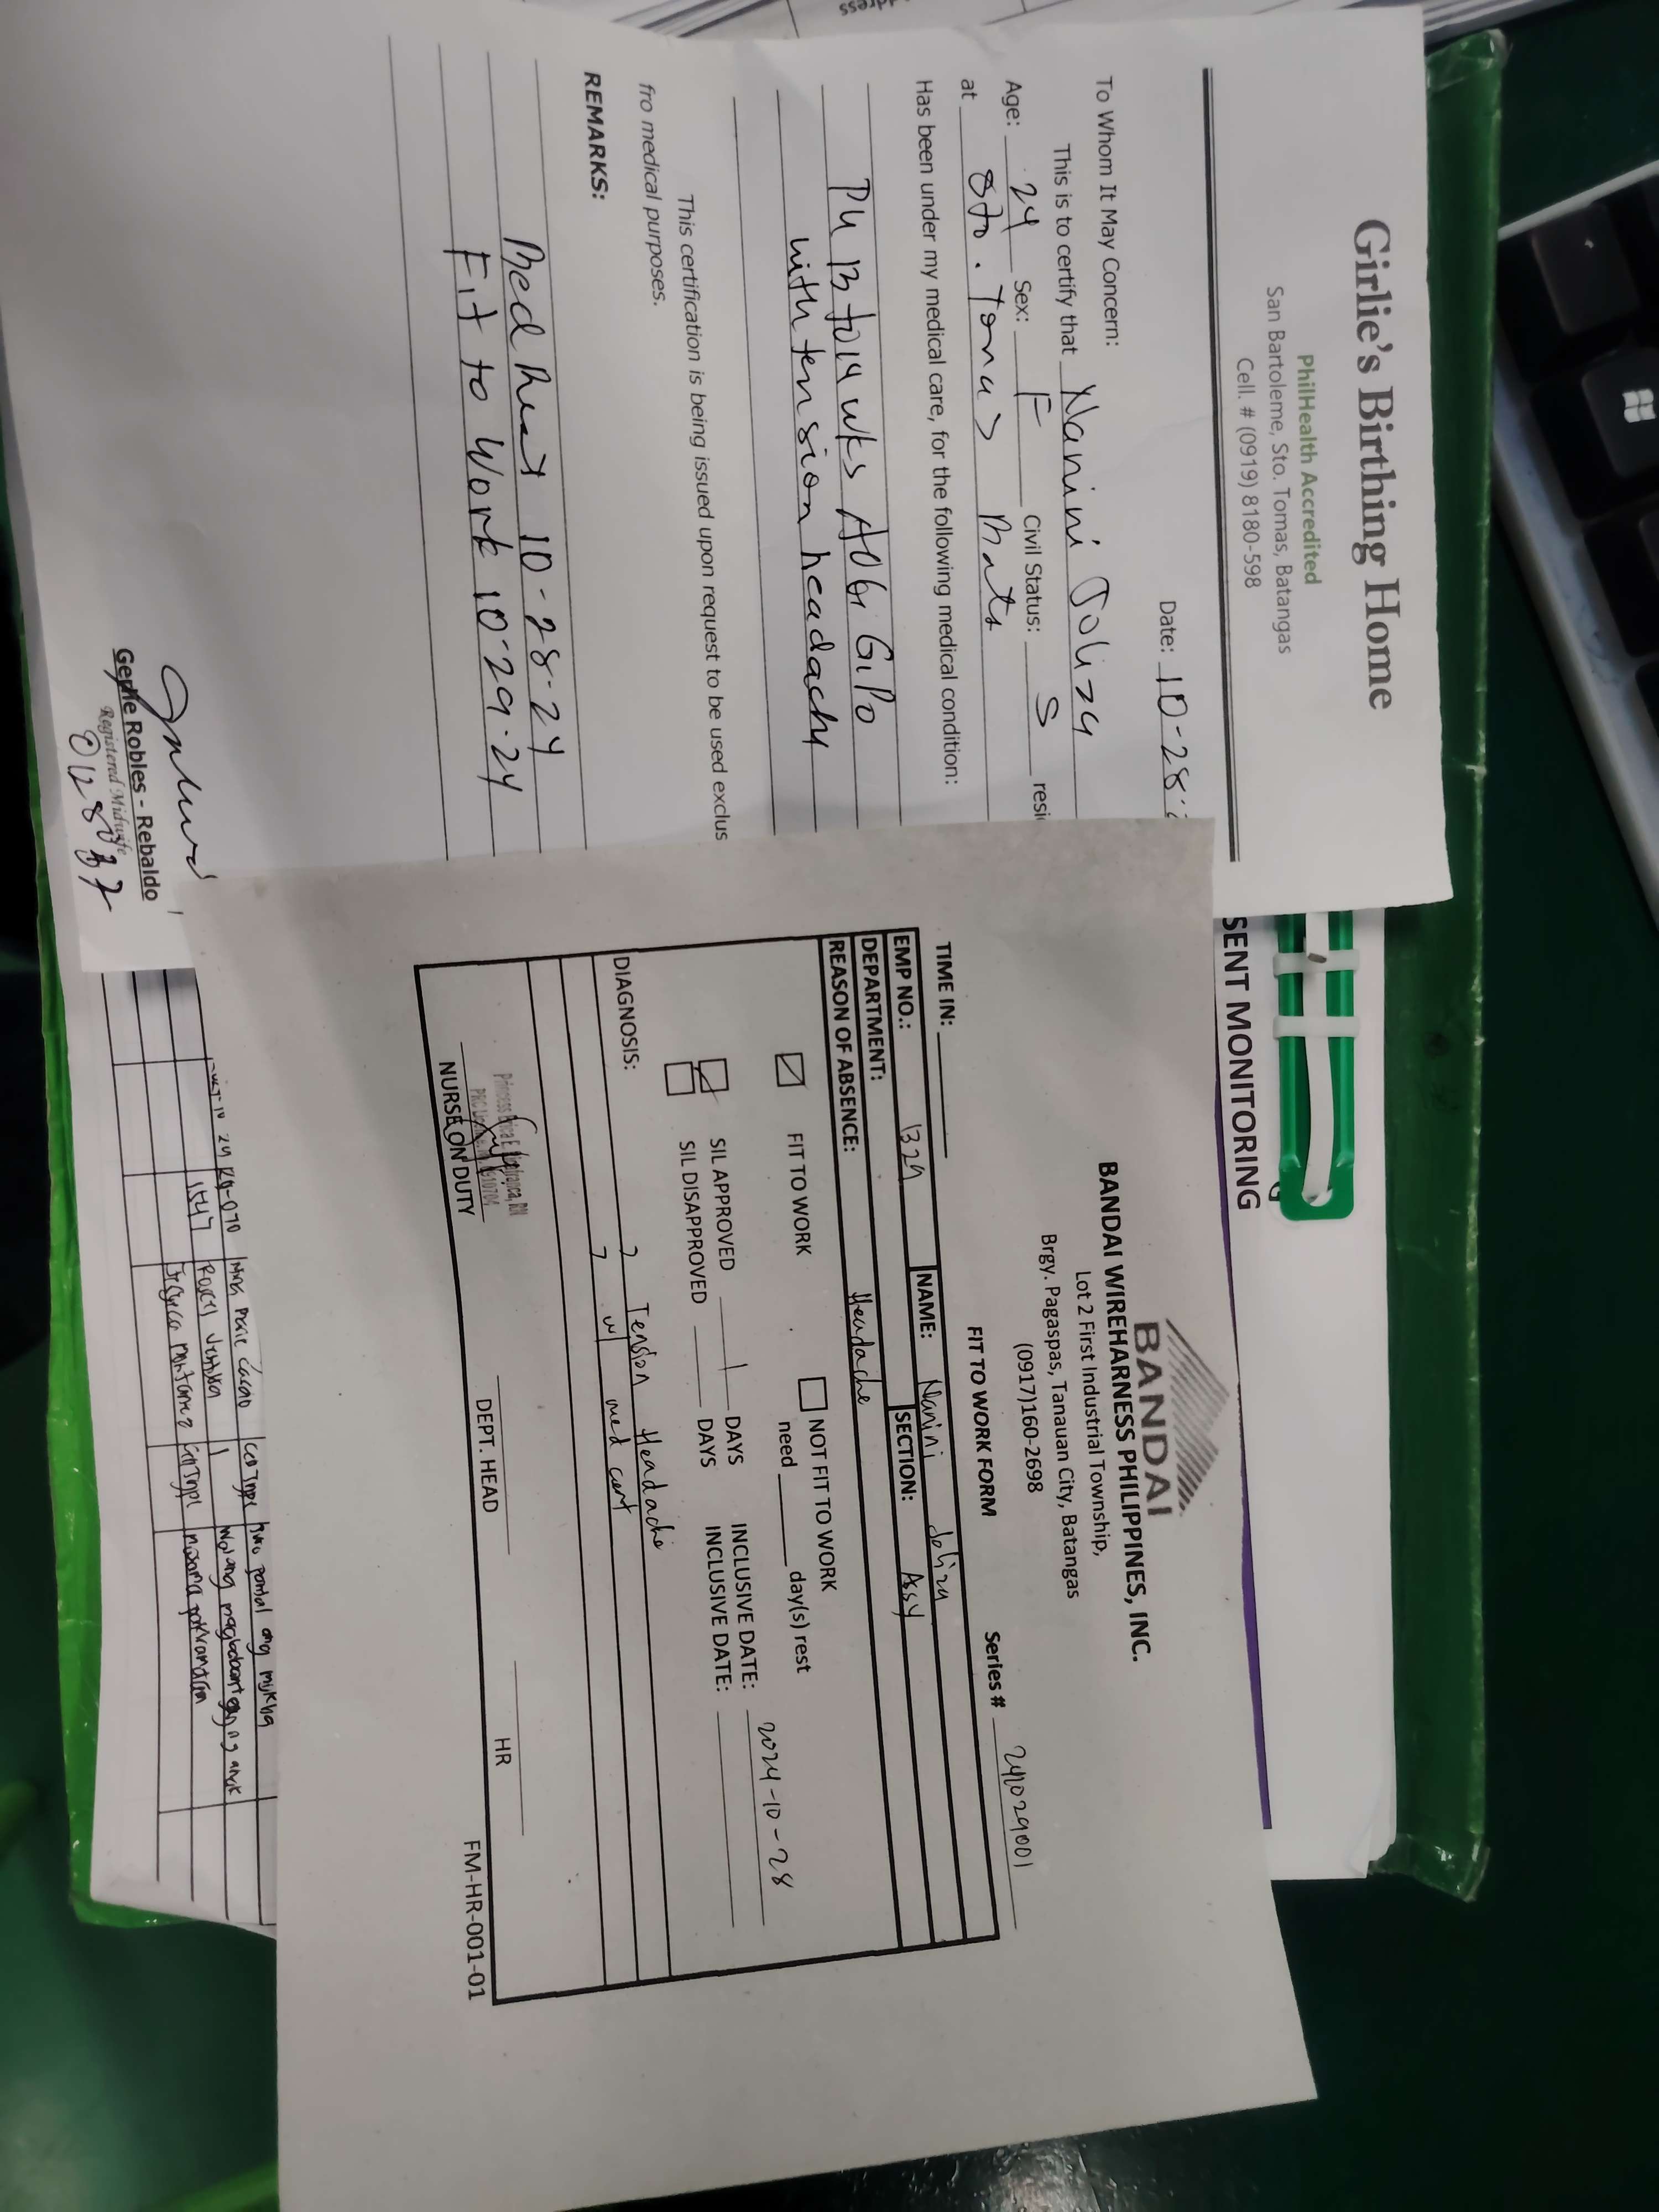 Girlie's Birthing Home
PhilHealth Accredited
San Bartoleme, Sto. Tomas, Batangas
Cell. # (0919) 8180-598
Date: 10-28-2
To Whom It May Concern:
This is to certify that Nanini Joliza
Age: 24 Sex: F Civil Status: S resi
at Sto. Tomas Bats
Has been under my medical care, for the following medical condition:
PU 13 to 14 wks AOG G1P0
with tension headache
This certification is being issued upon request to be used exclus
fro medical purposes.
REMARKS:
Bed Rest 10-28-24
Fit to Work 10-29-24
Robles - Rebaldo
Registered Midwife
SENT MONITORING
BANDAI
BANDAI WIREHARNESS PHILIPPINES, INC.
Lot 2 First Industrial Township,
Brgy. Pagaspas, Tanauan City, Batangas
(0917)160-2698
FIT TO WORK FORM
Series # 241029001
TIME IN:
EMP NO.: 1329 NAME: Nanini Joliza
DEPARTMENT: SECTION: Assy
REASON OF ABSENCE: Headache
FIT TO WORK NOT FIT TO WORK
need day(s) rest
SIL APPROVED 1 DAYS INCLUSIVE DATE: 2024-10-28
SIL DISAPPROVED DAYS INCLUSIVE DATE:
DIAGNOSIS: Tension Headache
w/ med cert
NURSE ON DUTY DEPT. HEAD HR
FM-HR-001-01
1547